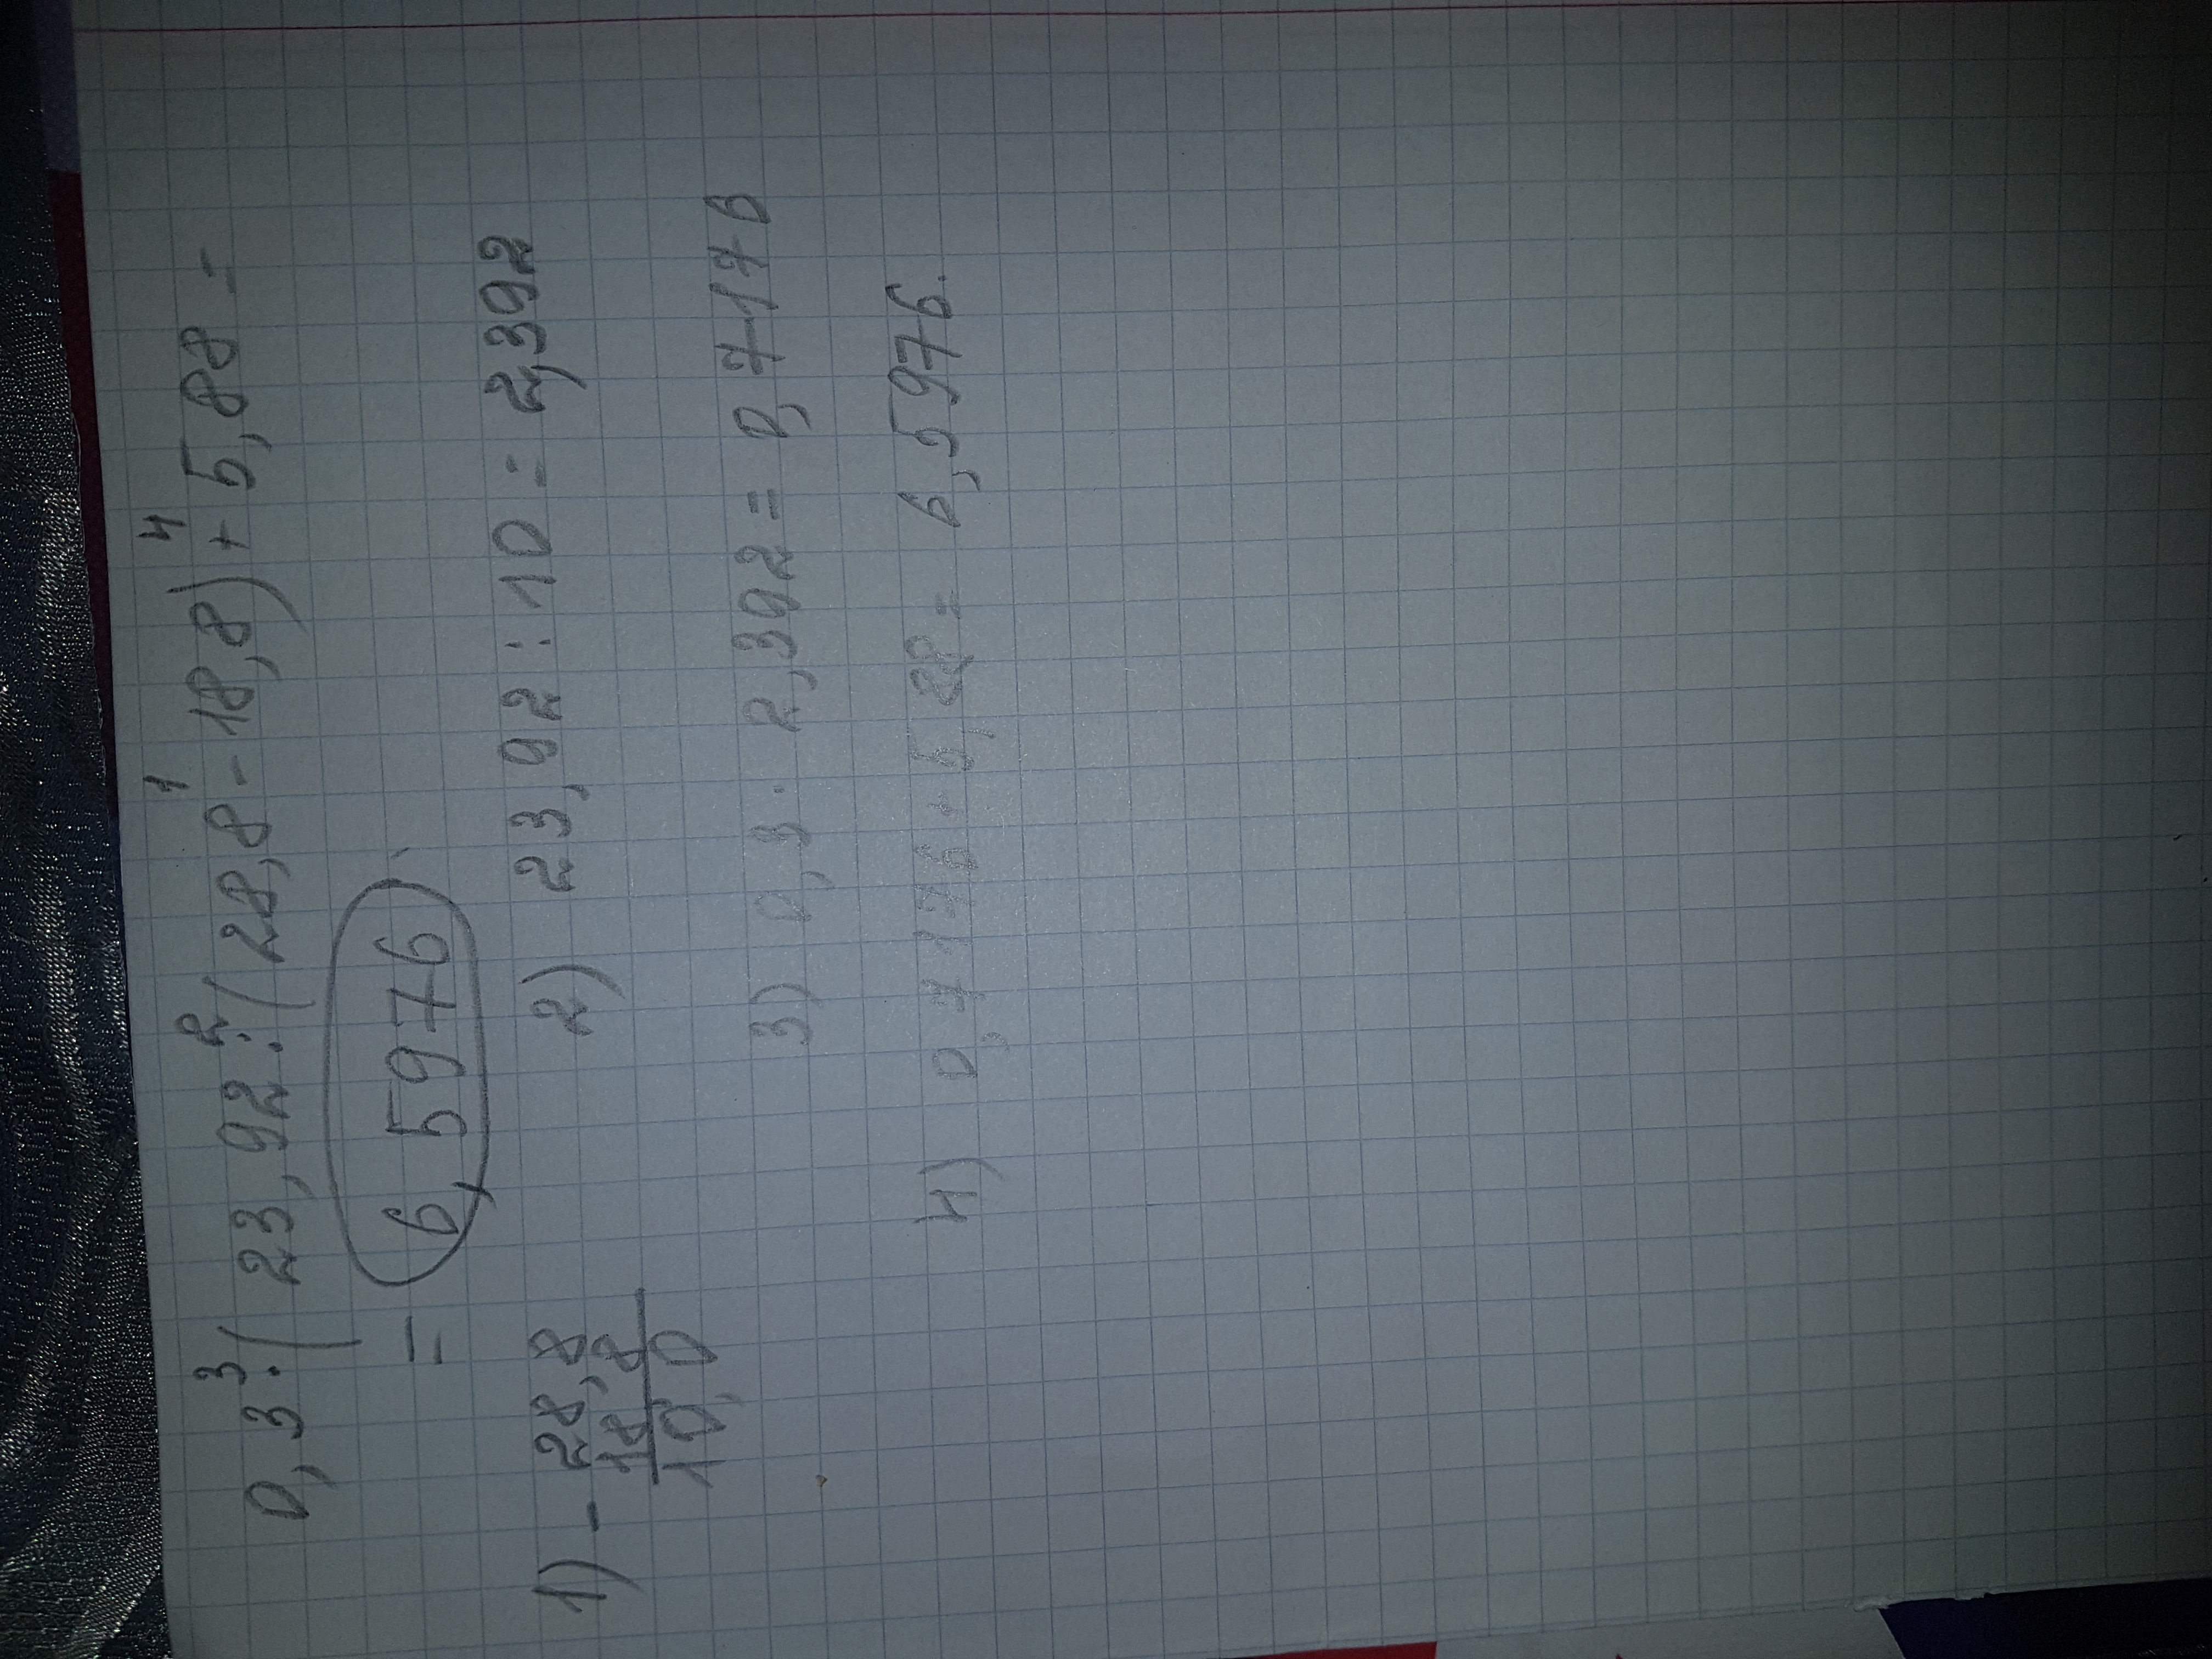 0,3·(23,92:(28,8-18,8)+5,88=
3 2 1 4
= 6,5976
1) - 28,8
18,8
10,0
2) 23,92:10=2,392
3) 0,3·2,392=0,7176
4) 0,7176+5,88= 6,5976.